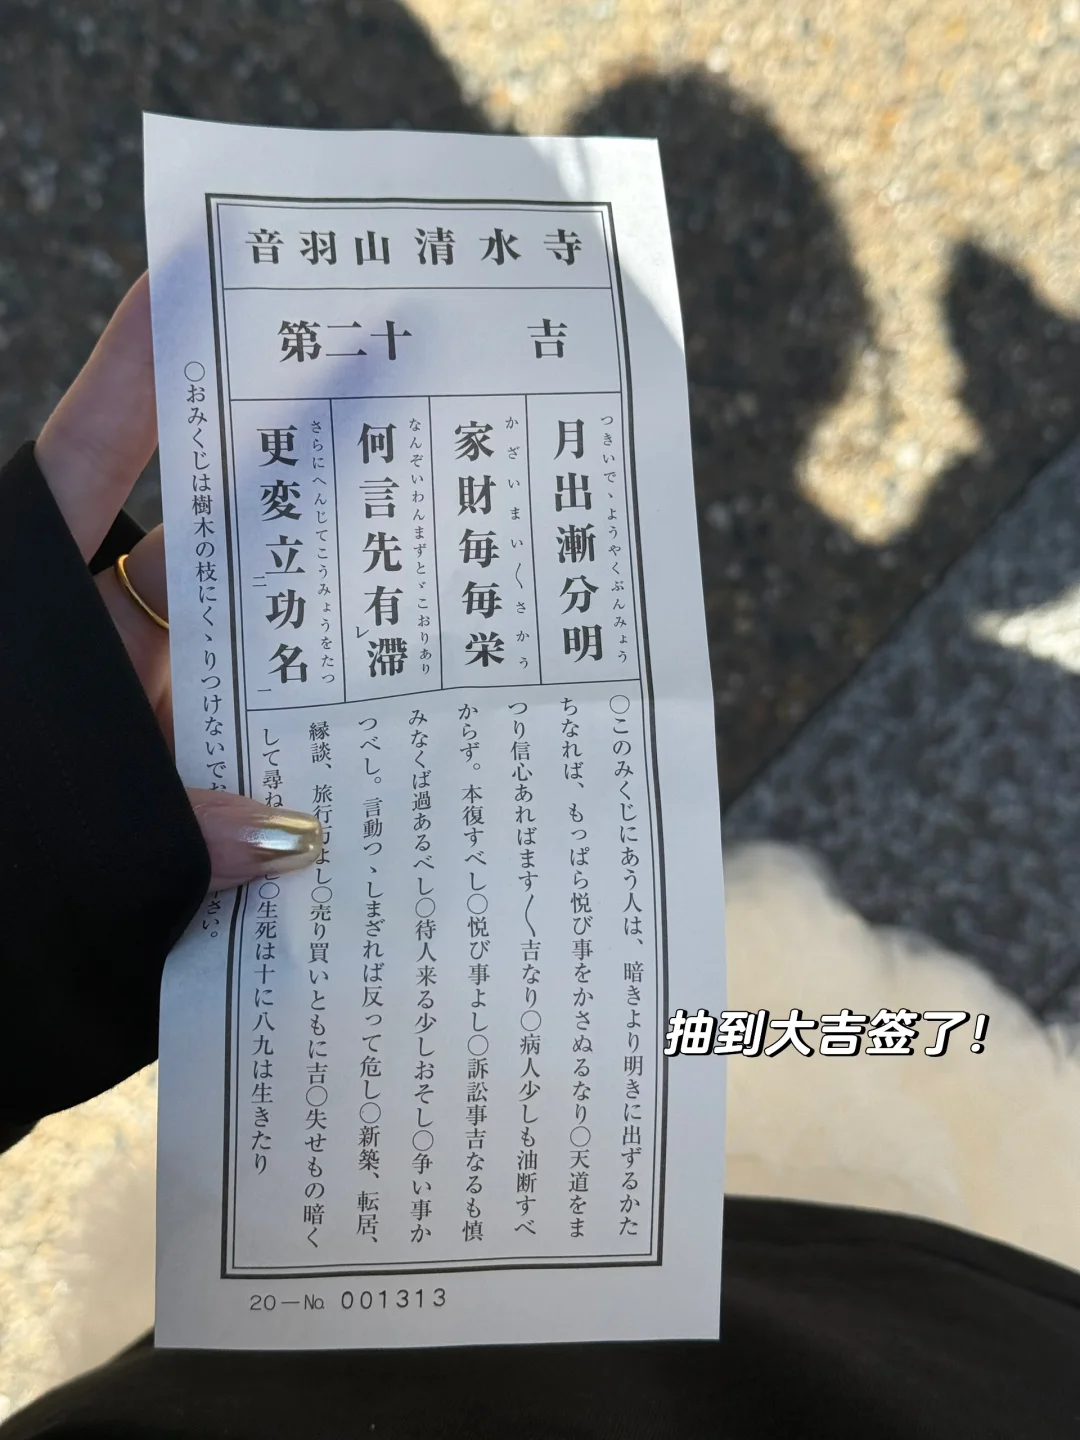 音羽山清水寺
第二十 吉
月出漸分明
つきいで、ようやくぶんみょう
家財毎毎栄
かざいまい〱さかう
何言先有滞
なんぞいわんまずとゞこおりあり
更変立功名
さらにへんじてこうみょうをたつ
レ
二
一
〇このみくじにあう人は、暗きより明きに出ずるかた
ちなれば、もっぱら悦び事をかさぬるなり〇天道をま
つり信心あればます〱吉なり〇病人少しも油断すべ
からず。本復すべし〇悦び事よし〇訴訟事吉なるも慎
みなくば過あるべし〇待人来る少しおそし〇争い事か
つべし。言動つゝしまざれば反って危し〇新築、転居、
縁談、旅行万よし〇売り買いともに吉〇失せもの暗く
して尋ね 〇生死は十に八九は生きたり
〇おみくじは樹木の枝にくゝりつけないでお さい。
20－№ 001313
抽到大吉签了！